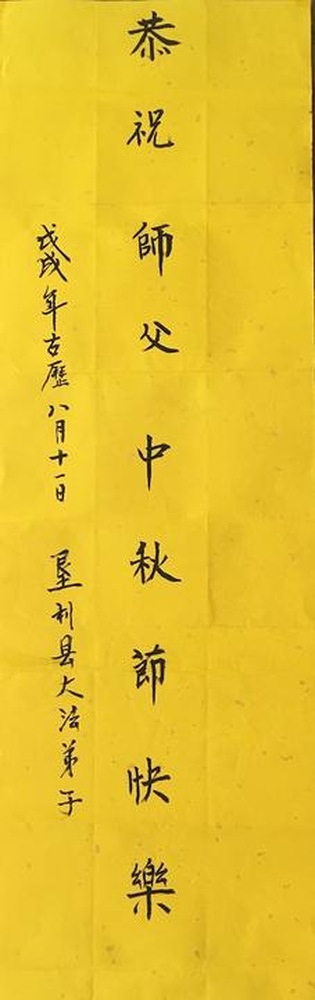 恭祝師父中秋節快樂
戊戌年古歷八月十一日 垦利县大法弟子